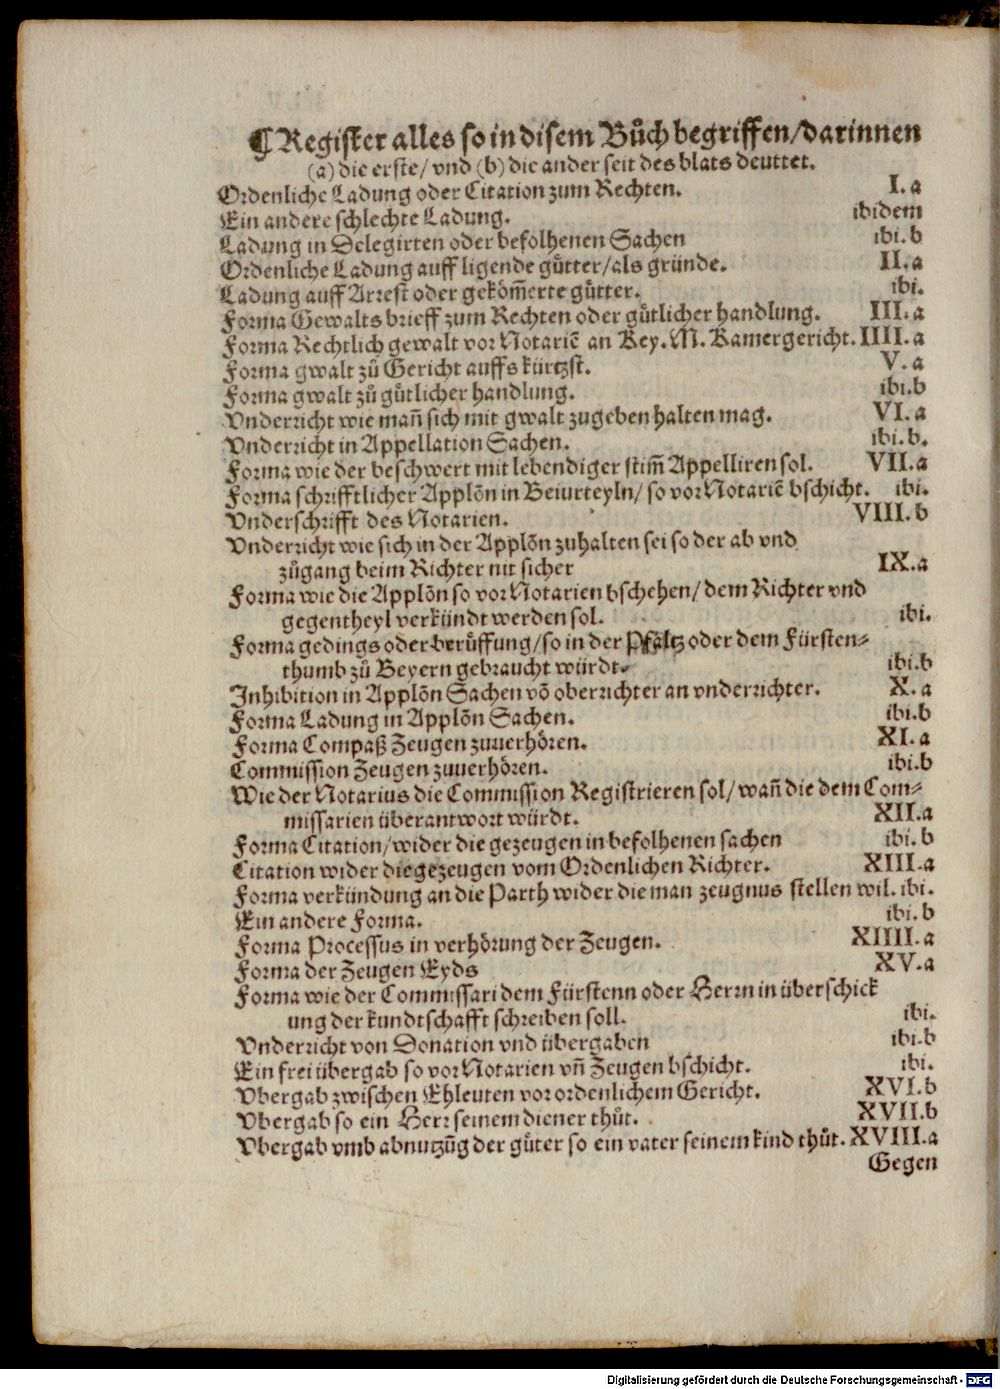 ¶ Register alles so in disem Bůch begriffen/darinnen
(a) die erste/ vnd (b) die ander seit des blats deuttet.
Ordenliche Ladung oder Citation zum Rechten. I. a
Ein andere schlechte Ladung. ibidem
Ladung in Delegirten oder befolhenen Sachen ibi. b
Ordenliche Ladung auff ligende gůtter/als gründe. II. a
Ladung auff Arrest oder gekōm̄erte gůtter. ibi.
Forma Gewalts brieff zum Rechten oder gůtlicher handlung. III. a
Forma Rechtlich gewalt vor Notariē an Key. M. Kamergericht. IIII. a
Forma gwalt zů Gericht auffs kürtzst. V. a
Forma gwalt zů gůtlicher handlung. ibi.b
Vnderricht wie mañ sich mit gwalt zugeben halten mag. VI. a
Vnderricht in Appellation Sachen. ibi. b.
Forma wie der beschwert mit lebendiger stim̄ Appelliren sol. VII. a
Forma schrifftlicher Applōn in Beiurteyln/ so vor Notariē bschicht. ibi.
Vnderschrifft des Notarien. VIII. b
Vnderricht wie sich in der Applōn zuhalten sei so der ab vnd
zůgang beim Richter nit sicher IX. a
Forma wie die Applōn so vor Notarien bschehen/ dem Richter vnd
gegentheyl verkündt werden sol. ibi.
Forma gedings oder berůffung/so in der Pfaltz oder dem Fürsten⸗
thumb zů Beyern gebraucht würdt. ibi.b
Inhibition in Applōn Sachen vō oberrichter an vnderrichter. X. a
Forma Ladung in Applōn Sachen. ibi.b
Forma Compaß Zeugen zuuerhören. XI. a
Commission Zeugen zuuerhören. ibi.b
Wie der Notarius die Commission Registrieren sol/ wañ die dem Com⸗
missarien überantwort würdt. XII.a
Forma Citation/wider die gezeugen in befolhenen sachen ibi. b
Citation wider die gezeugen vom Ordenlichen Richter. XIII.a
Forma verkündung an die Parth wider die man zeugnus stellen wil. ibi.
Ein andere Forma. ibi. b
Forma Processus in verhörung der Zeugen. XIIII. a
Forma der Zeugen Eyds XV. a
Forma wie der Commissari dem Fürstenn oder Herrn in überschick
ung der kundtschafft schreiben soll. ibi.
Vnderricht von Donation vnd übergaben ibi.b
Ein frei übergab so vor Notarien vñ Zeugen bschicht. ibi.
Vbergab zwischen Ehleuten vor ordenlichem Gericht. XVI. b
Vbergab so ein Herr seinem diener thůt. XVII. b
Vbergab vmb abnutzūg der gůter so ein vater seinem kind thůt. XVIII. a
Gegen
Digitalisierung gefördert durch die Deutsche Forschungsgemeinschaft - DFG